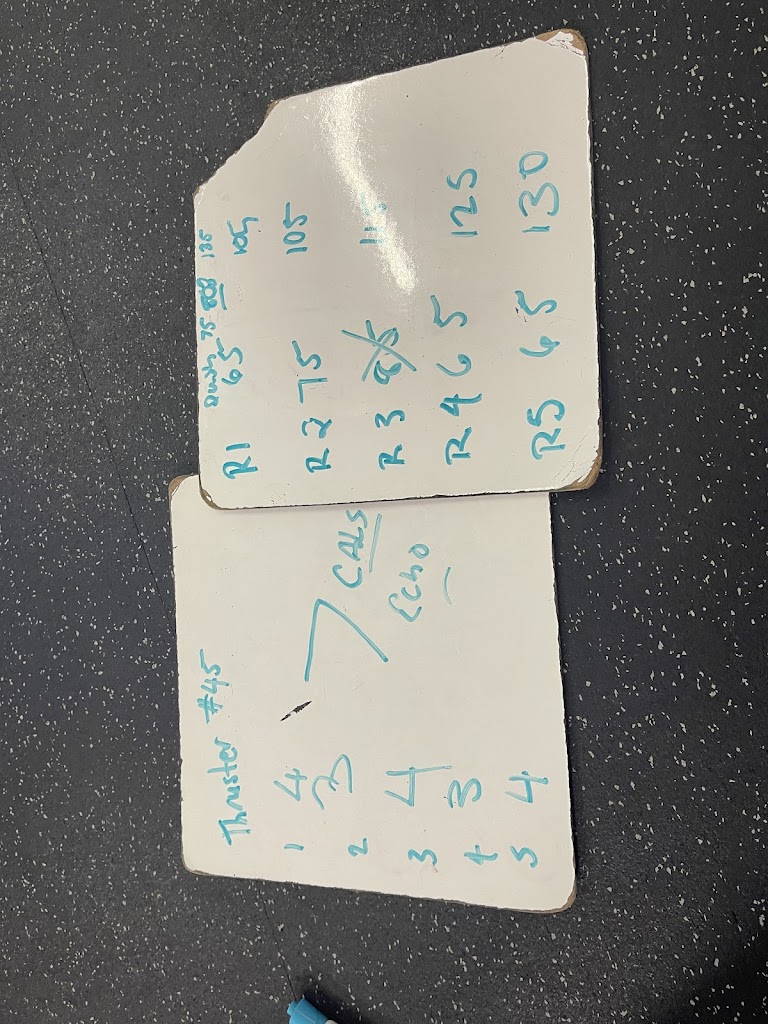 Thruster #45
1 4
2 3
3 4
4 3
5 4
> CALS
Echo
75 135
R1 65 105
R2 75 105
R3 115
R4 65 125
R5 65 130